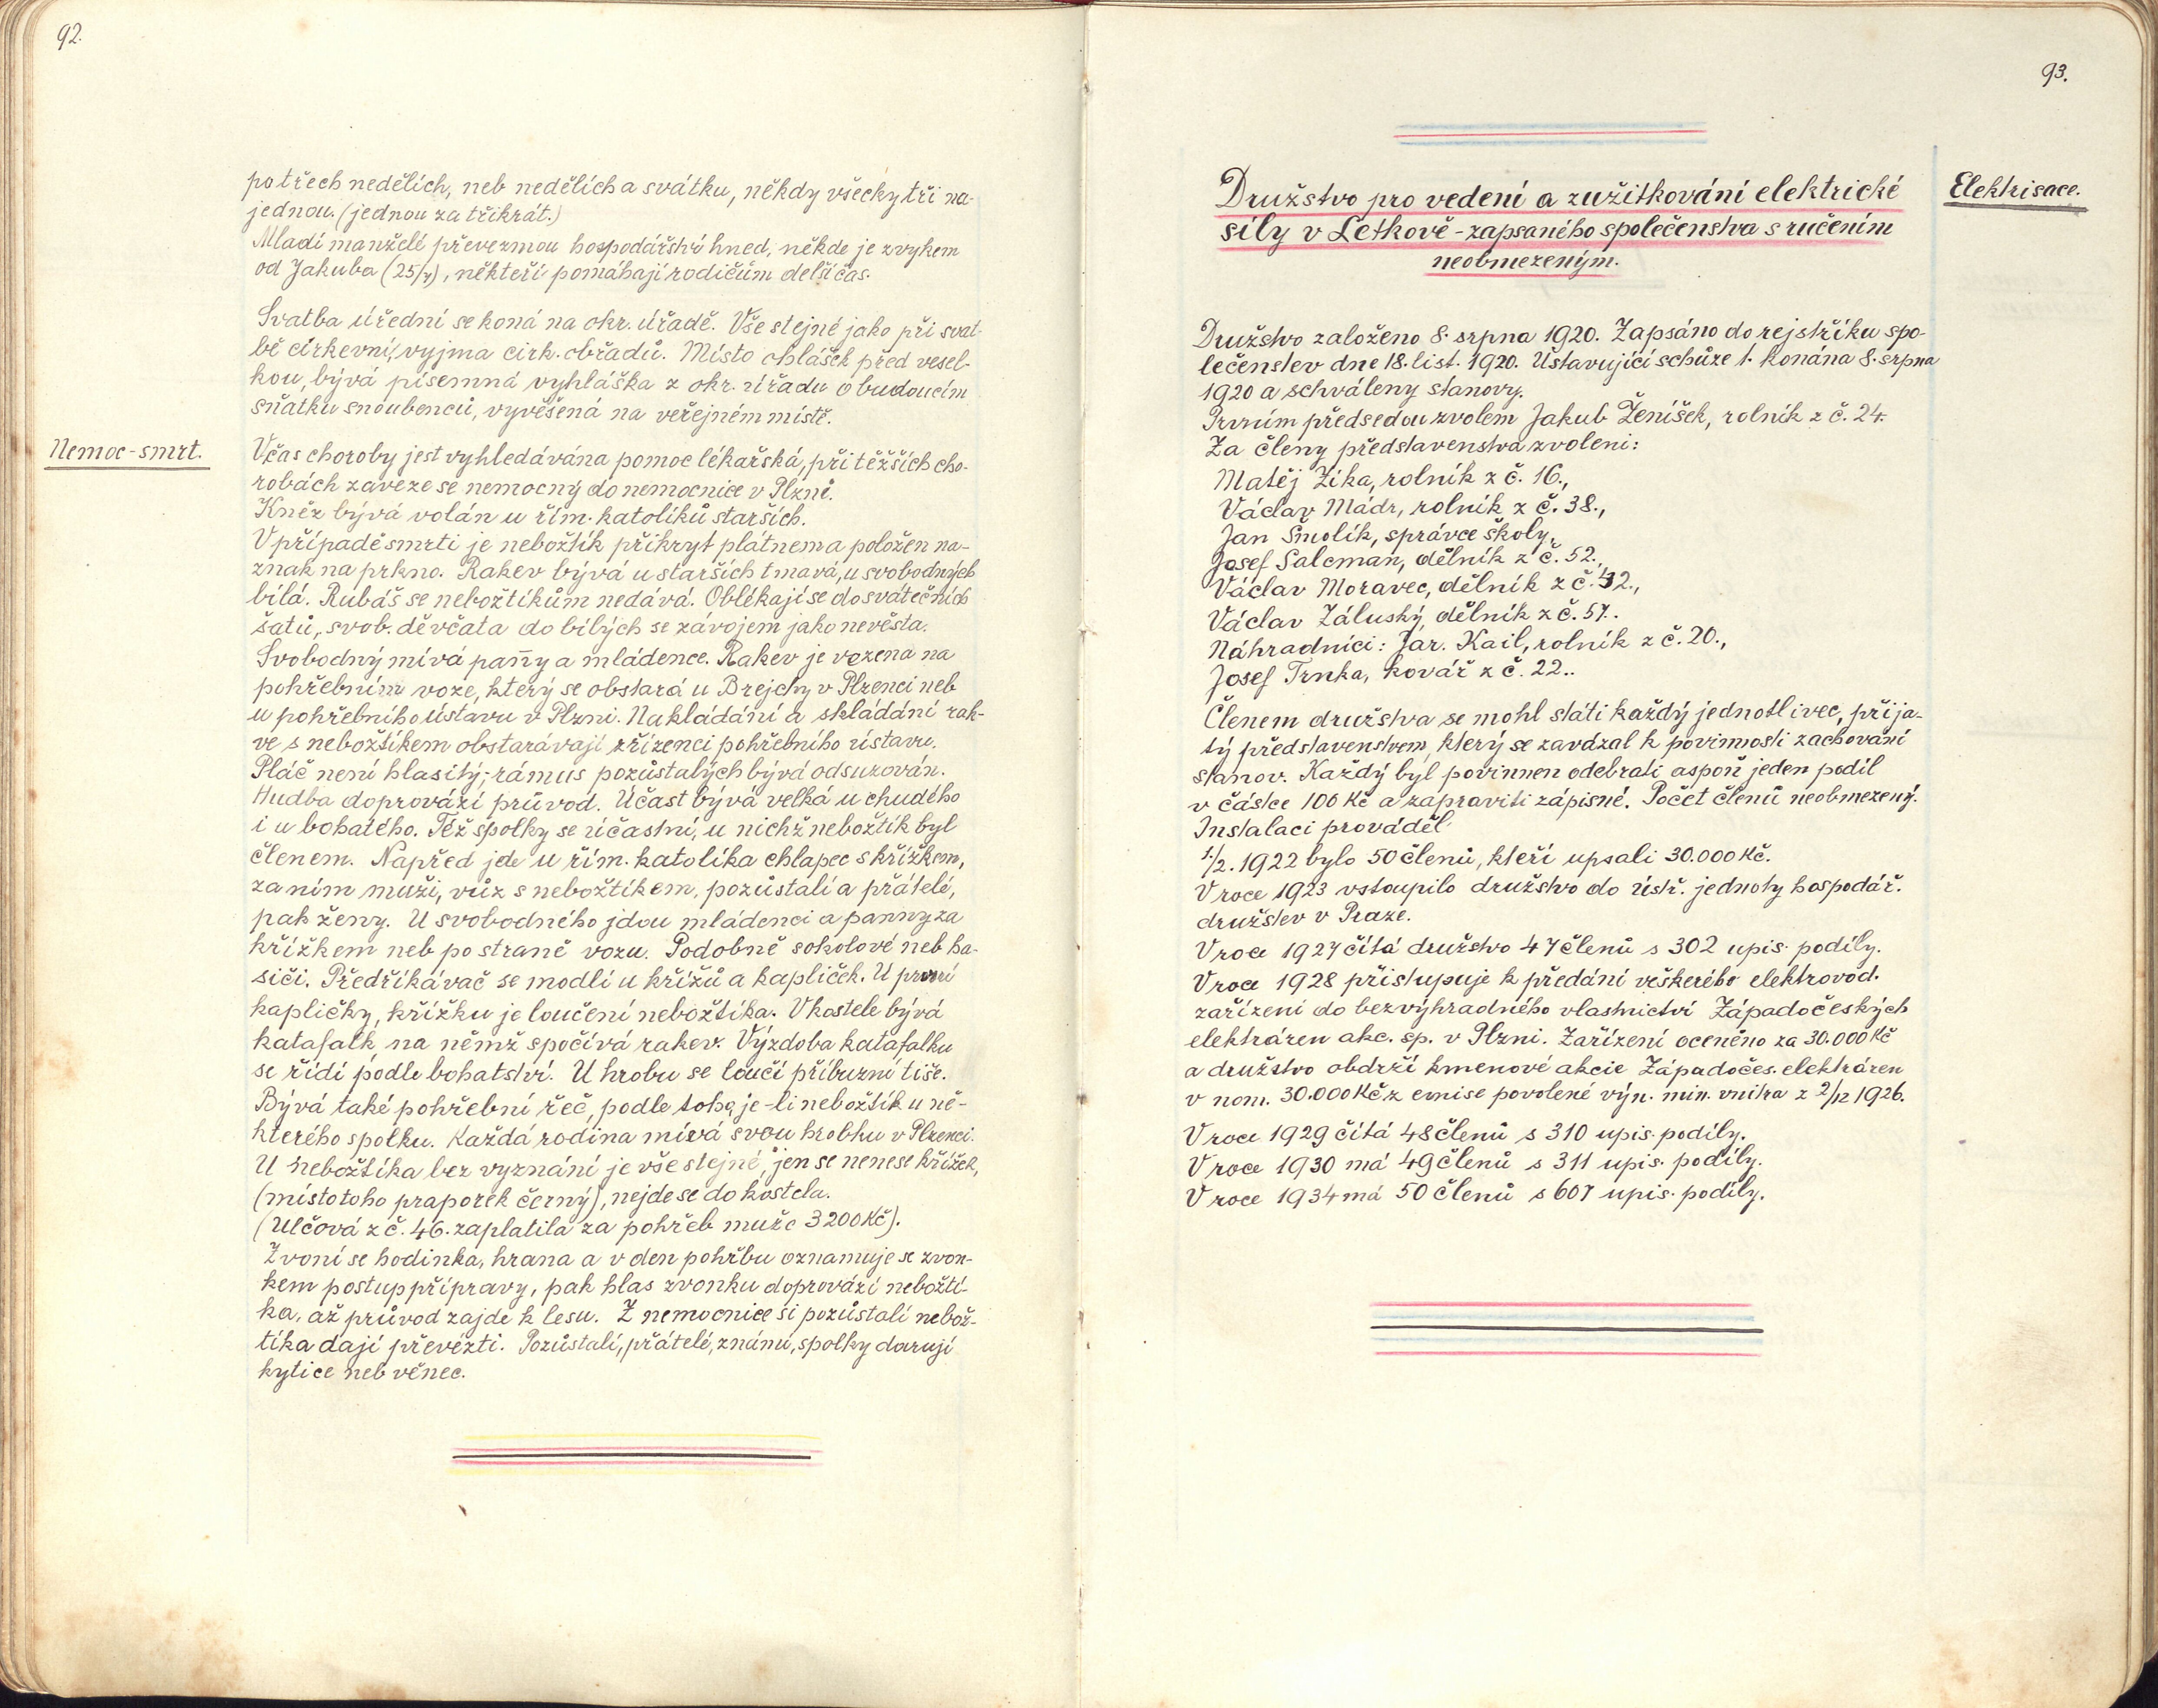 92.
po třech nedělích, neb nedělích a svátku, někdy všecky tři na-
jednou. (jednou za třikrát.)
Mladí manželé převezmou hospodářství hned, někde je zvykem
od Jakuba (25/7), někteří pomáhají rodičům delší čas.
Svatba úřední se koná na okr. úřadě. Vše stejné jako při svat-
bě církevní, vyjma cirk. obřadů. Místo ohlášek před vesel-
kou, bývá písemná vyhláška z okr. úřadu o budoucím
sňatku snoubenců, vyvěšená na veřejném místě.
Nemoc-smrt.
Včas choroby jest vyhledávána pomoc lékařská, při těžších cho-
robách zaveze se nemocný do nemocnice v Plzni.
Kněz bývá volán u řím. katolíků starších.
V případě smrti je nebožtík přikryt plátnem a položen na-
znak na prkno. Rakev bývá u starších tmavá, u svobodných
bílá. Rubáš se nebožtíkům nedává. Oblékají se do svátečních
šatů, svob. děvčata do bílých se závojem jako nevěsta.
Svobodný mívá panny a mládence. Rakev je vezena na
pohřebním voze, který se obstará u Brejchy v Plzenci neb
u pohřebního ústavu v Plzni. Nakládání a skládání rak-
ve s nebožtíkem obstarávají zřízenci pohřebního ústavu.
Pláč není hlasitý; rámus pozůstalých bývá odsuzován.
Hudba doprovází průvod. Účast bývá velká u chudého
i u bohatého. Též spolky se účastní, u nichž nebožtík byl
členem. Napřed jde u řím. katolíka chlapec s křížkem,
za ním muži, vůz s nebožtíkem, pozůstalí a přátelé,
pak ženy. U svobodného jdou mládenci a panny za
křížkem neb po straně vozu. Podobně sokolové neb ha-
siči. Předříkávač se modlí u křížů a kapliček. U první
kapličky, křížku je loučení nebožtíka. V kostele bývá
katafalk, na němž spočívá rakev. Výzdoba katafalku
se řídí podle bohatství. U hrobu se loučí příbuzní tiše.
Bývá také pohřební řeč, podle toho, je-li nebožtík u ně-
kterého spolku. Každá rodina mívá svou hrobku v Plzenci.
U nebožtíka bez vyznání je vše stejné, jen se nenese křížek,
(místo toho praporek černý), nejde se do kostela.
(Ulčová z č. 46. zaplatila za pohřeb muže 3200 Kč).
Zvoní se hodinka, hrana a v den pohřbu oznamuje se zvon-
kem postup přípravy, pak hlas zvonku doprovází nebožtí-
ka, až průvod zajde k lesu. Z nemocnice si pozůstalí nebož-
tíka dají převézti. Pozůstalí, přátelé, známí, spolky darují
kytice neb věnec.
93.
Družstvo pro vedení a zužitkování elektrické
síly v Letkově - zapsaného společenstva s ručením
neobmezeným.
Elektrisace.
Družstvo založeno 8. srpna 1920. Zapsáno do rejstříku spo-
lečenstev dne 18. list. 1920. Ustavující schůze 1. konána 8. srpna
1920 a schváleny stanovy.
Prvním předsedou zvolem Jakub Ženíšek, rolník z č. 24.
Za členy představenstva zvoleni:
Matěj Zíka, rolník z č. 16.,
Václav Mádr, rolník z č. 38.,
Jan Smolík, správce školy,
Josef Salcman, dělník z č. 52.,
Václav Moravec, dělník z č.
Václav Záluský, dělník z č. 57..
Náhradníci: Jar. Kail, rolník z č. 20.,
Josef Trnka, kovář z č. 22..
Členem družstva se mohl státi každý jednotlivec, přija-
tý představenstvem, který se zavázal k povinnosti zachování
stanov. Každý byl povinnen odebrati aspoň jeden podíl
v částce 100 Kč a zapraviti zápisné. Počet členů neobmezený.
Instalaci prováděl
1./2. 1922 bylo 50 členů, kteří upsali 30.000 Kč.
V roce 1923 vstoupilo družstvo do ústř. jednoty hospodář.
družstev v Praze.
V roce 1927 čítá družstvo 47 členů s 302 upis. podíly.
V roce 1928 přistupuje k předání veškerého elektrovod.
zařízení do bezvýhradného vlastnictví Západočeských
elektráren akc. sp. v Plzni. Zařízení oceněno za 30.000 Kč
a družstvo obdrží kmenové akcie Západočes. elektráren
v nom. 30.000 Kč z emise povolené výn. min. vnitra z 2/12 1926.
V roce 1929 čítá 48 členů s 310 upis. podíly.
V roce 1930 má 49 členů s 311 upis. podíly.
V roce 1934 má 50 členů s 607 upis. podíly.